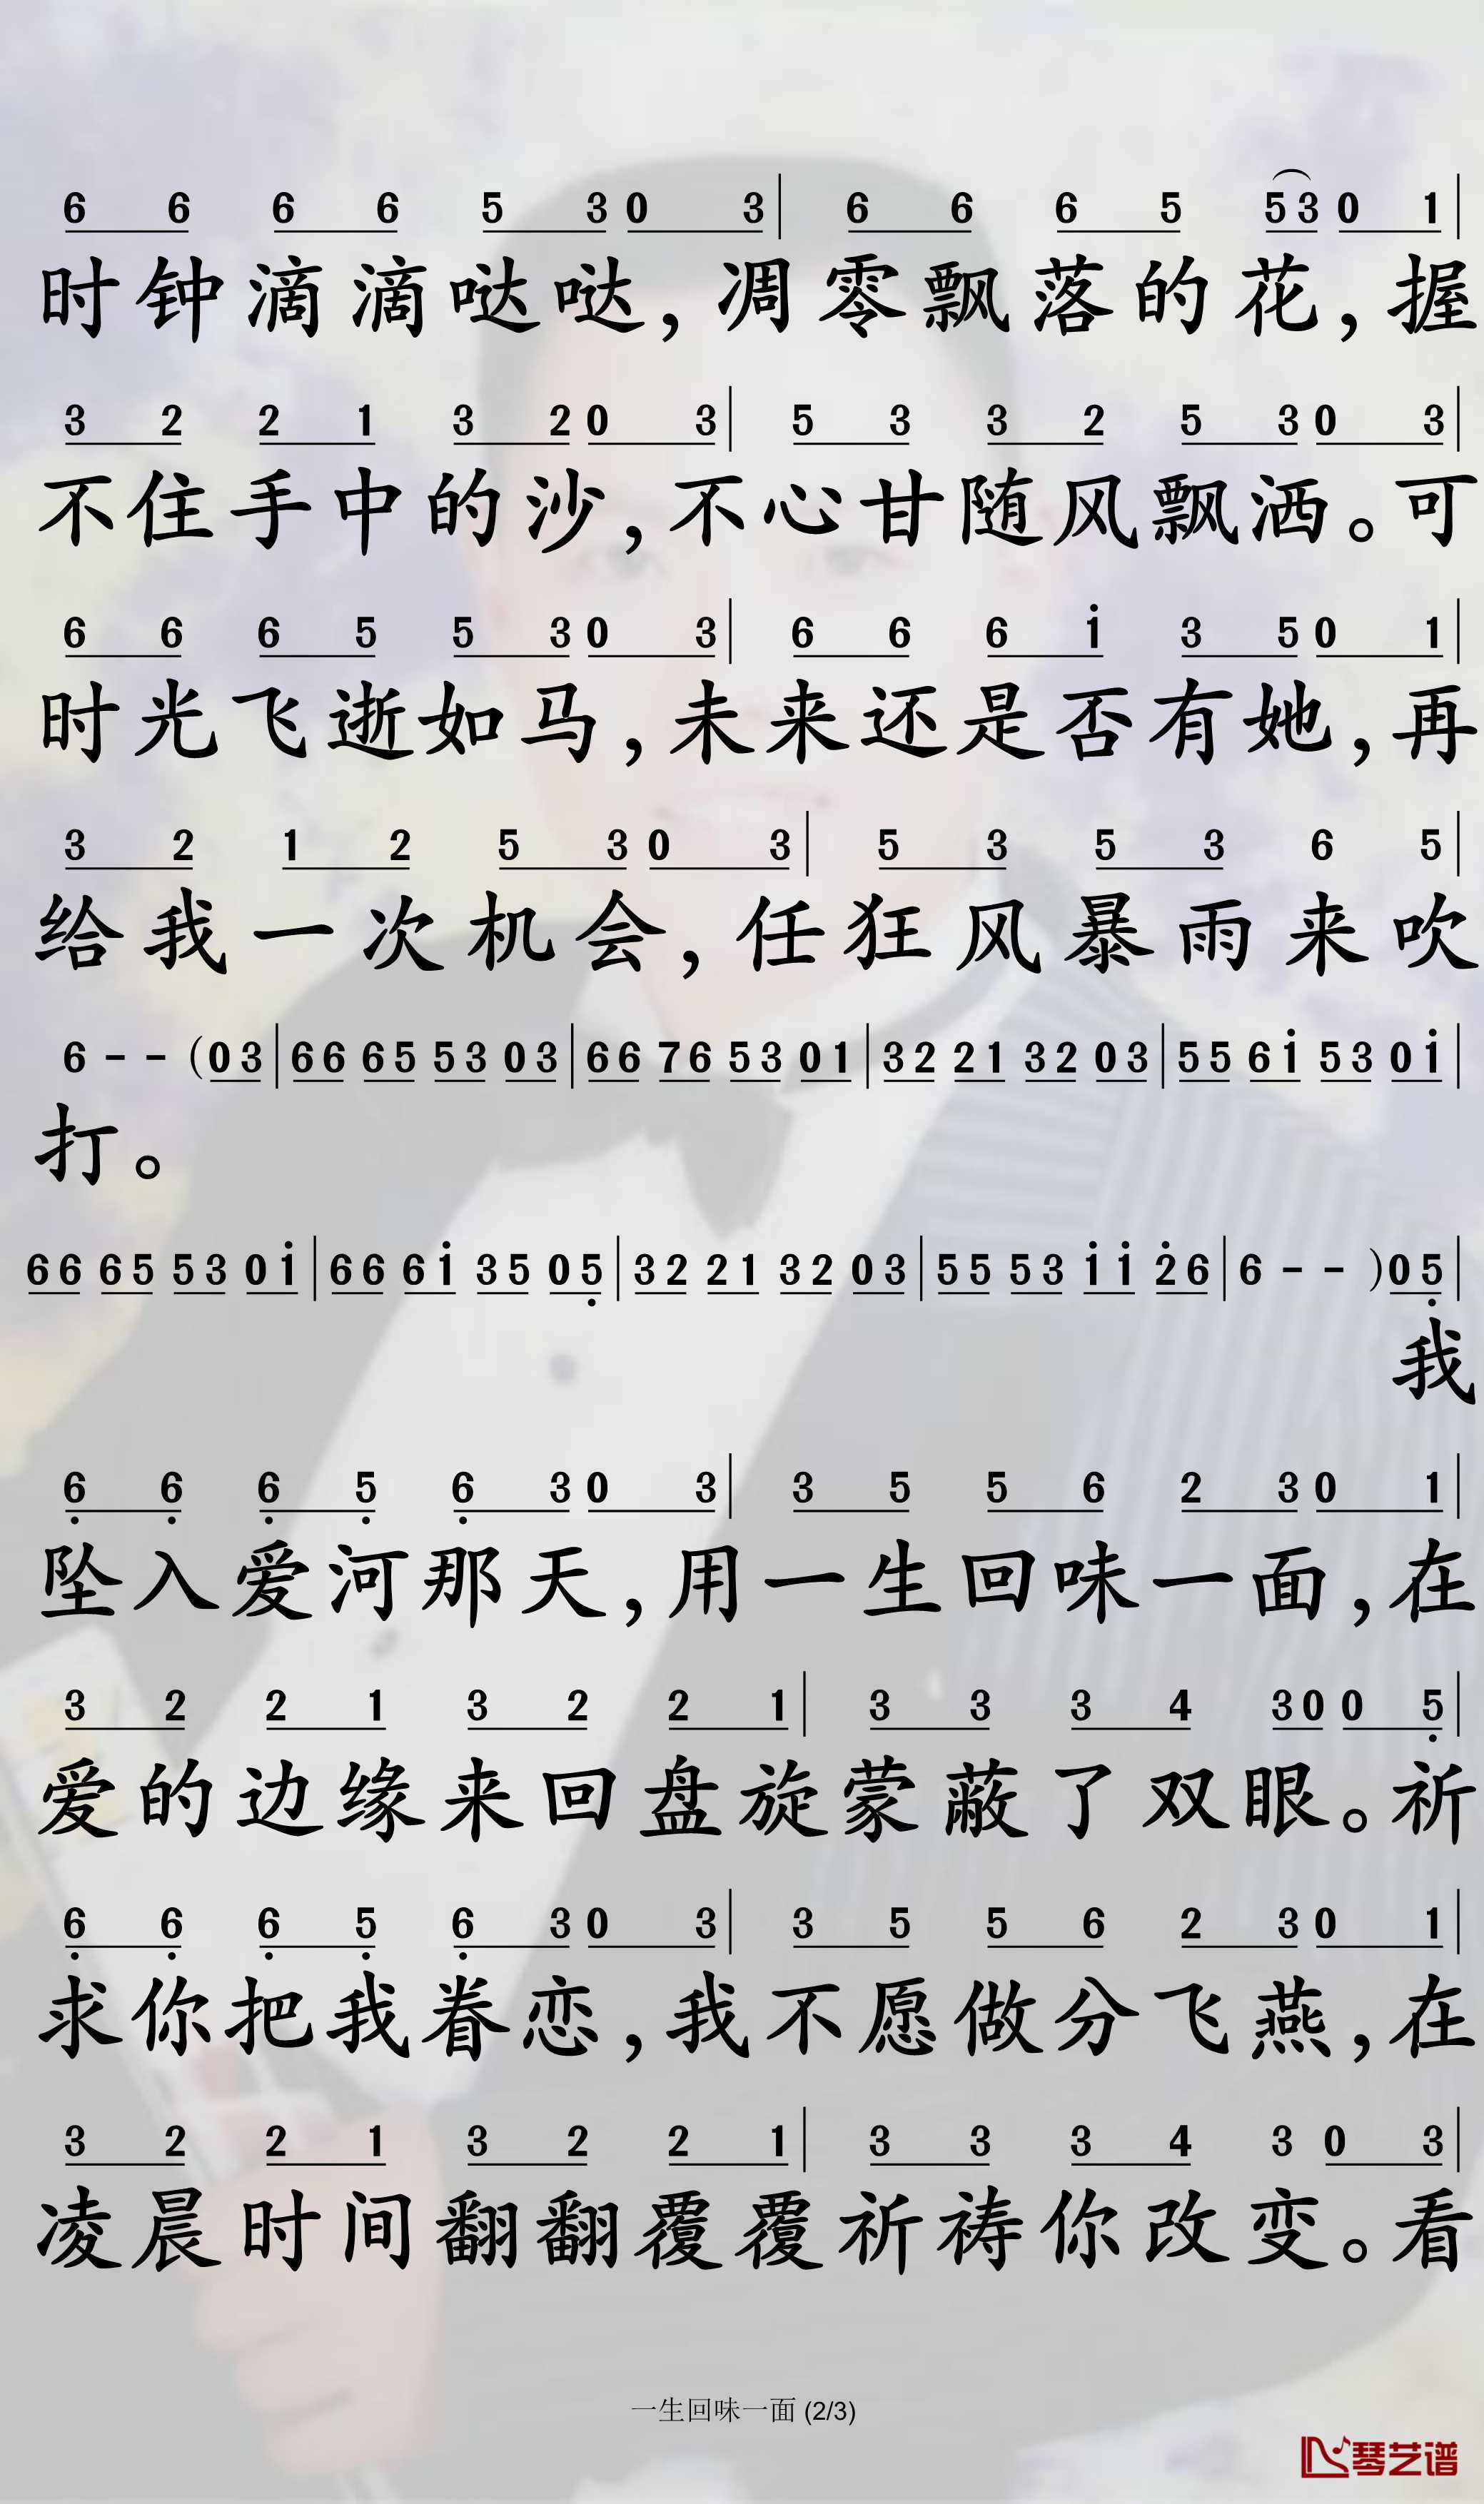 6 6 6 6 5 3 0 3 | 6 6 6 5 5 3 0 1 |
时钟滴滴哒哒,凋零飘落的花,握
3 2 2 1 3 2 0 3 | 5 3 3 2 5 3 0 3 |
不住手中的沙,不心甘随风飘洒。可
6 6 6 5 5 3 0 3 | 6 6 6 i 3 5 0 1 |
时光飞逝如马,未来还是否有她,再
3 2 1 2 5 3 0 3 | 5 3 5 3 6 5 |
给我一次机会,任狂风暴雨来吹
6 - - (0 3 | 6 6 6 5 5 3 0 3 | 6 6 7 6 5 3 0 1 | 3 2 2 1 3 2 0 3 | 5 5 6 i 5 3 0 i |
打。
6 6 6 5 5 3 0 i | 6 6 6 i 3 5 0 5 | 3 2 2 1 3 2 0 3 | 5 5 5 3 i i 2 6 | 6 - - ) 0 5 |
我
6 6 6 5 6 3 0 3 | 3 5 5 6 2 3 0 1 |
坠入爱河那天,用一生回味一面,在
3 2 2 1 3 2 2 1 | 3 3 3 4 3 0 0 5 |
爱的边缘来回盘旋蒙蔽了双眼。祈
6 6 6 5 6 3 0 3 | 3 5 5 6 2 3 0 1 |
求你把我眷恋,我不愿做分飞燕,在
3 2 2 1 3 2 2 1 | 3 3 3 4 3 0 3 |
凌晨时间翻翻覆覆祈祷你改变。看
一生回味一面 (2/3)
琴艺谱